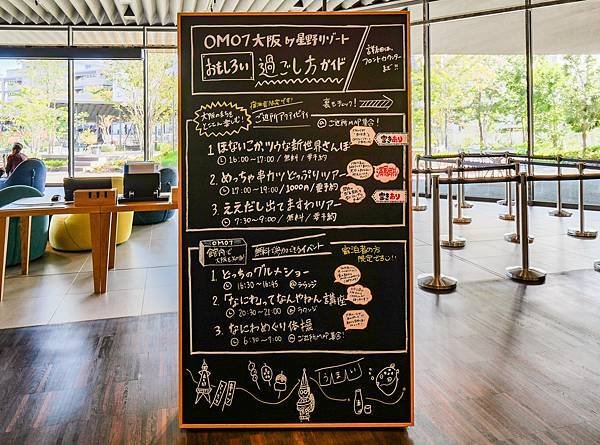 OMO7大阪 by 星野リゾート
おもしろい 過ごし方ガイド
詳細は、
フロントカウンター
まで!!
宿泊者限定です!
裏もチェック!
大阪のまちを
とことん楽しむ!
ご近所アクティビティ
@ご近所MAP集合!
1. ほないこか、ツウな新世界さんぽ
16:00~17:00 / 無料 / 要予約
空きあり
2. めっちゃ串カツどっぷりツアー
17:00~19:00 / 1000円 / 要予約
満席
3. ええだし出てますわツアー
7:30~9:00 / 無料 / 要予約
空きあり
OMO7
館内で
無料で参加できるイベント
宿泊者の方
限定です!!
1. どっちのグルメショー
16:30~16:45 @ラウンジ
2. 「なにわ」ってなんやねん講座
20:30~21:00 @ラウンジ
3. なにわめぐり体操
6:30~7:00 @ご近所MAP集合!
うまい